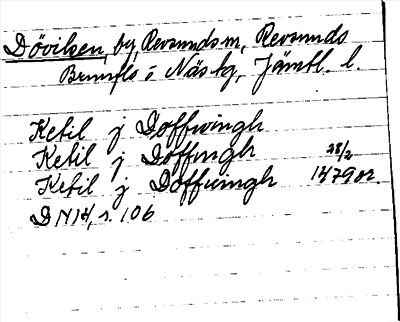 Döviken, by, Revsunds sn, Revsunds
Brunflo o Näs tg, Jämtl. l.
Ketil j Doffwingh
Ketil j Doffingh 28/2
Ketil j Doffuingh 1479 or.
DN 14, s. 106